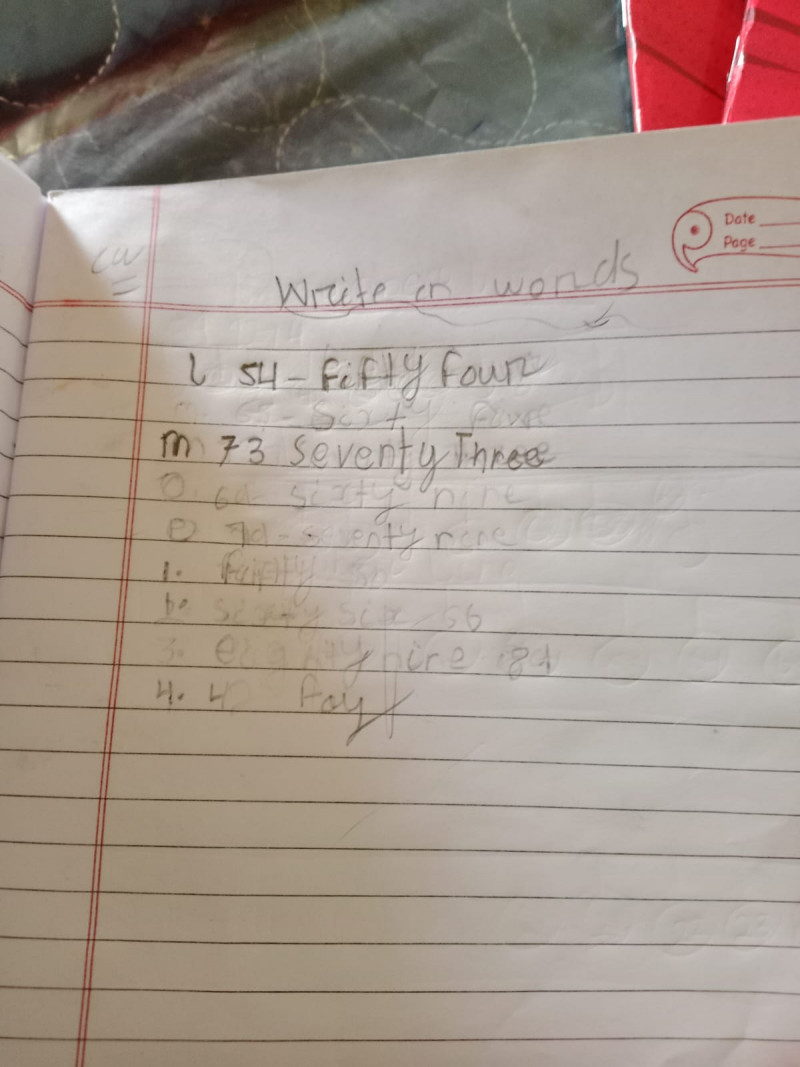 Date
Page
CW
Write in words
l 54 - fifty four
sixty
m 73 seventy Three
O. 69- sixty nine
79 - seventy nine
1. fifty
b. sixty six 56
3. eighty nine 89
4. 4